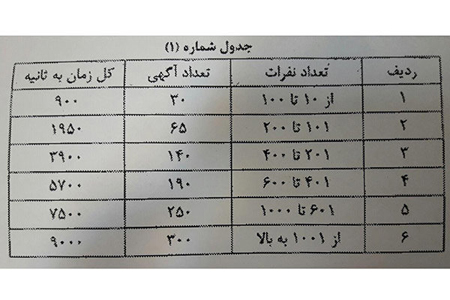 جدول شماره (۱)
ردیف تعداد نفرات تعداد آگهی کل زمان به ثانیه
۱ از ۱۰ تا ۱۰۰ ۳۰ ۹۰۰
۲ ۱۰۱ تا ۲۰۰ ۶۵ ۱۹۵۰
۳ ۲۰۱ تا ۴۰۰ ۱۴۰ ۳۹۰۰
۴ ۴۰۱ تا ۶۰۰ ۱۹۰ ۵۷۰۰
۵ ۶۰۱ تا ۱۰۰۰ ۲۵۰ ۷۵۰۰
۶ از ۱۰۰۱ به بالا ۳۰۰ ۹۰۰۰